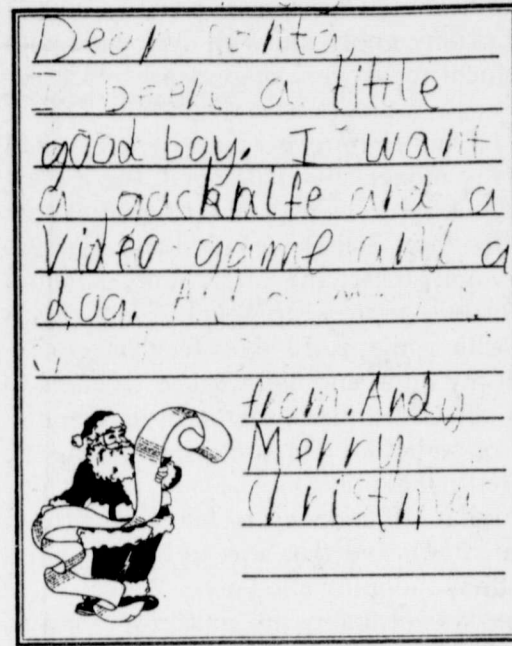 Dear Santa,
I been a little
good boy. I want
a gacknife and a
Video game and a
dog.
from. Andy
Merry
Christma